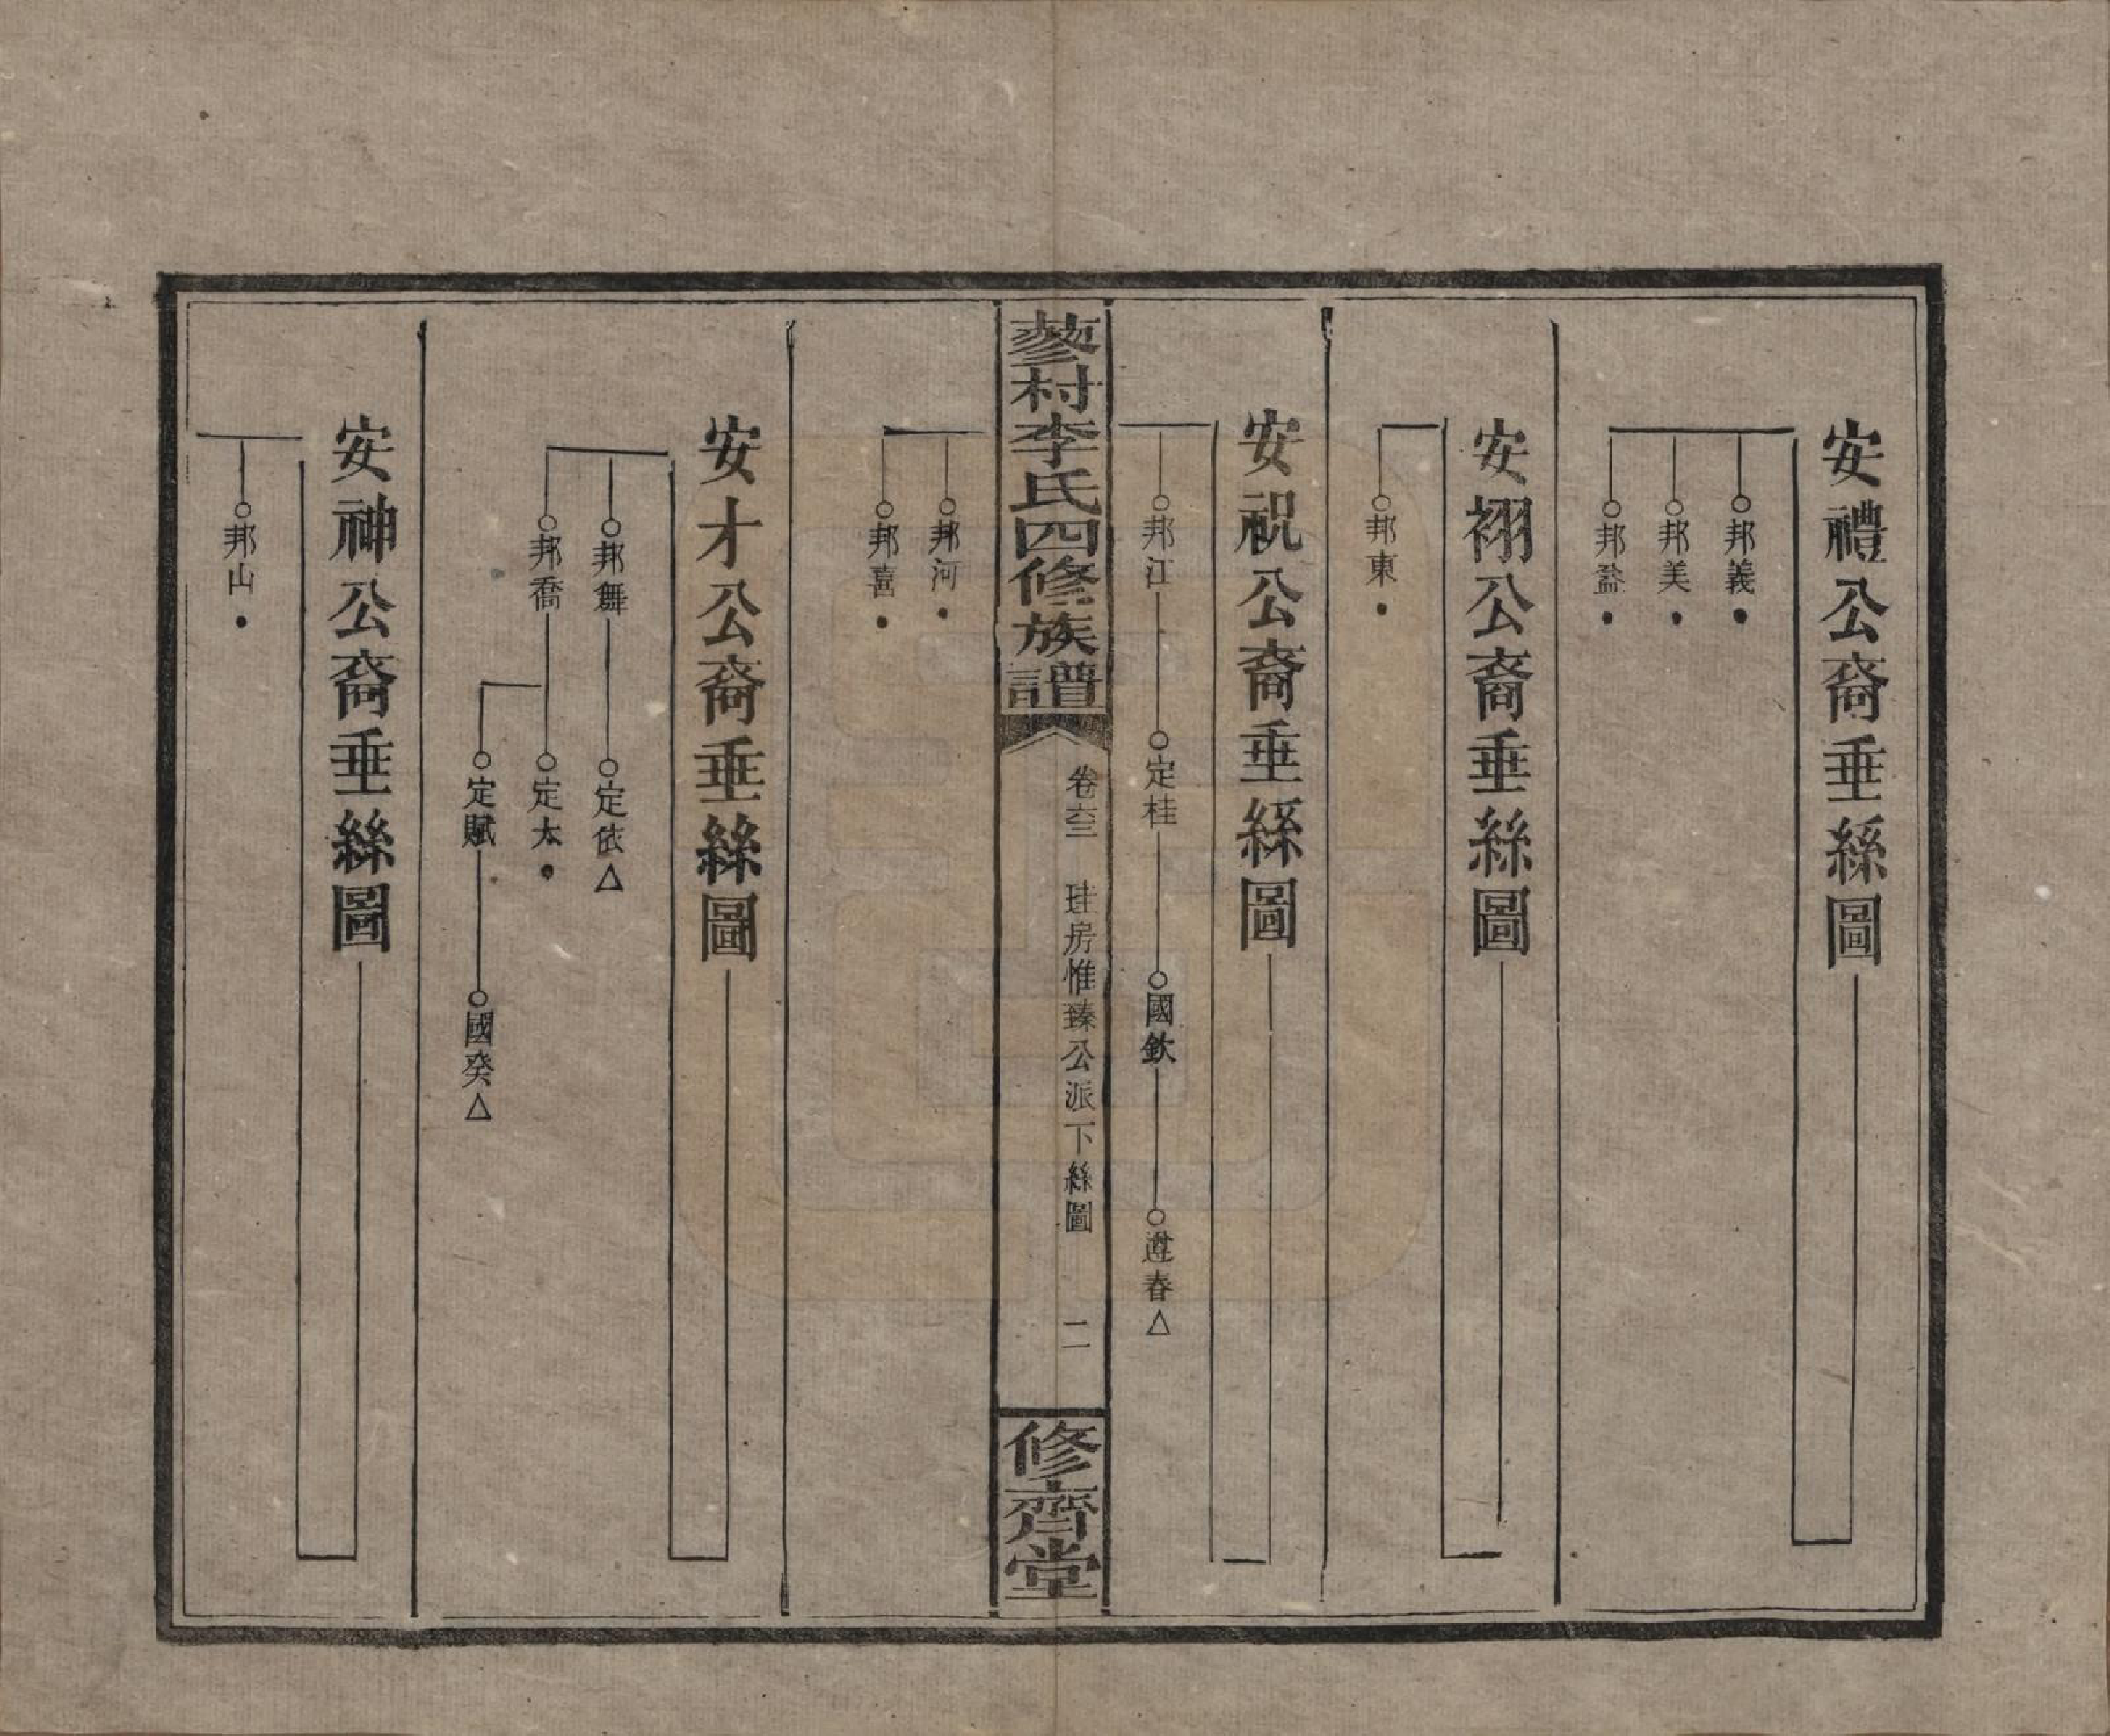 安禮公裔垂絲圖
邦義
邦美
邦益
安祤公裔垂絲圖
邦東
安祝公裔垂絲圖
邦江 定桂 國欽 遵春
蓼村李氏四修族譜
卷六三 珪房惟臻公派下絲圖 二
修齊堂
邦河
邦喜
安才公裔垂絲圖
邦舞 定依
邦喬 定太
定賦 國癸
安神公裔垂絲圖
邦山